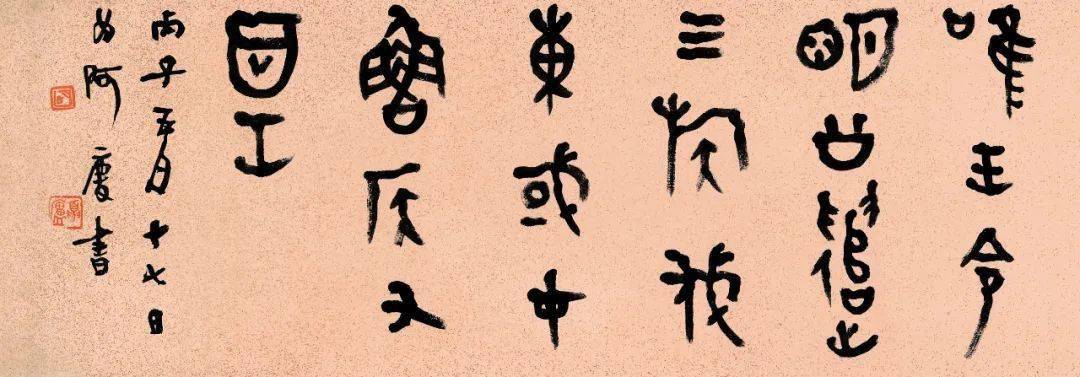 唯王令
明公遣
三族伐
東或才
魯侯又
工
丙子五月十七日
为阿慶書